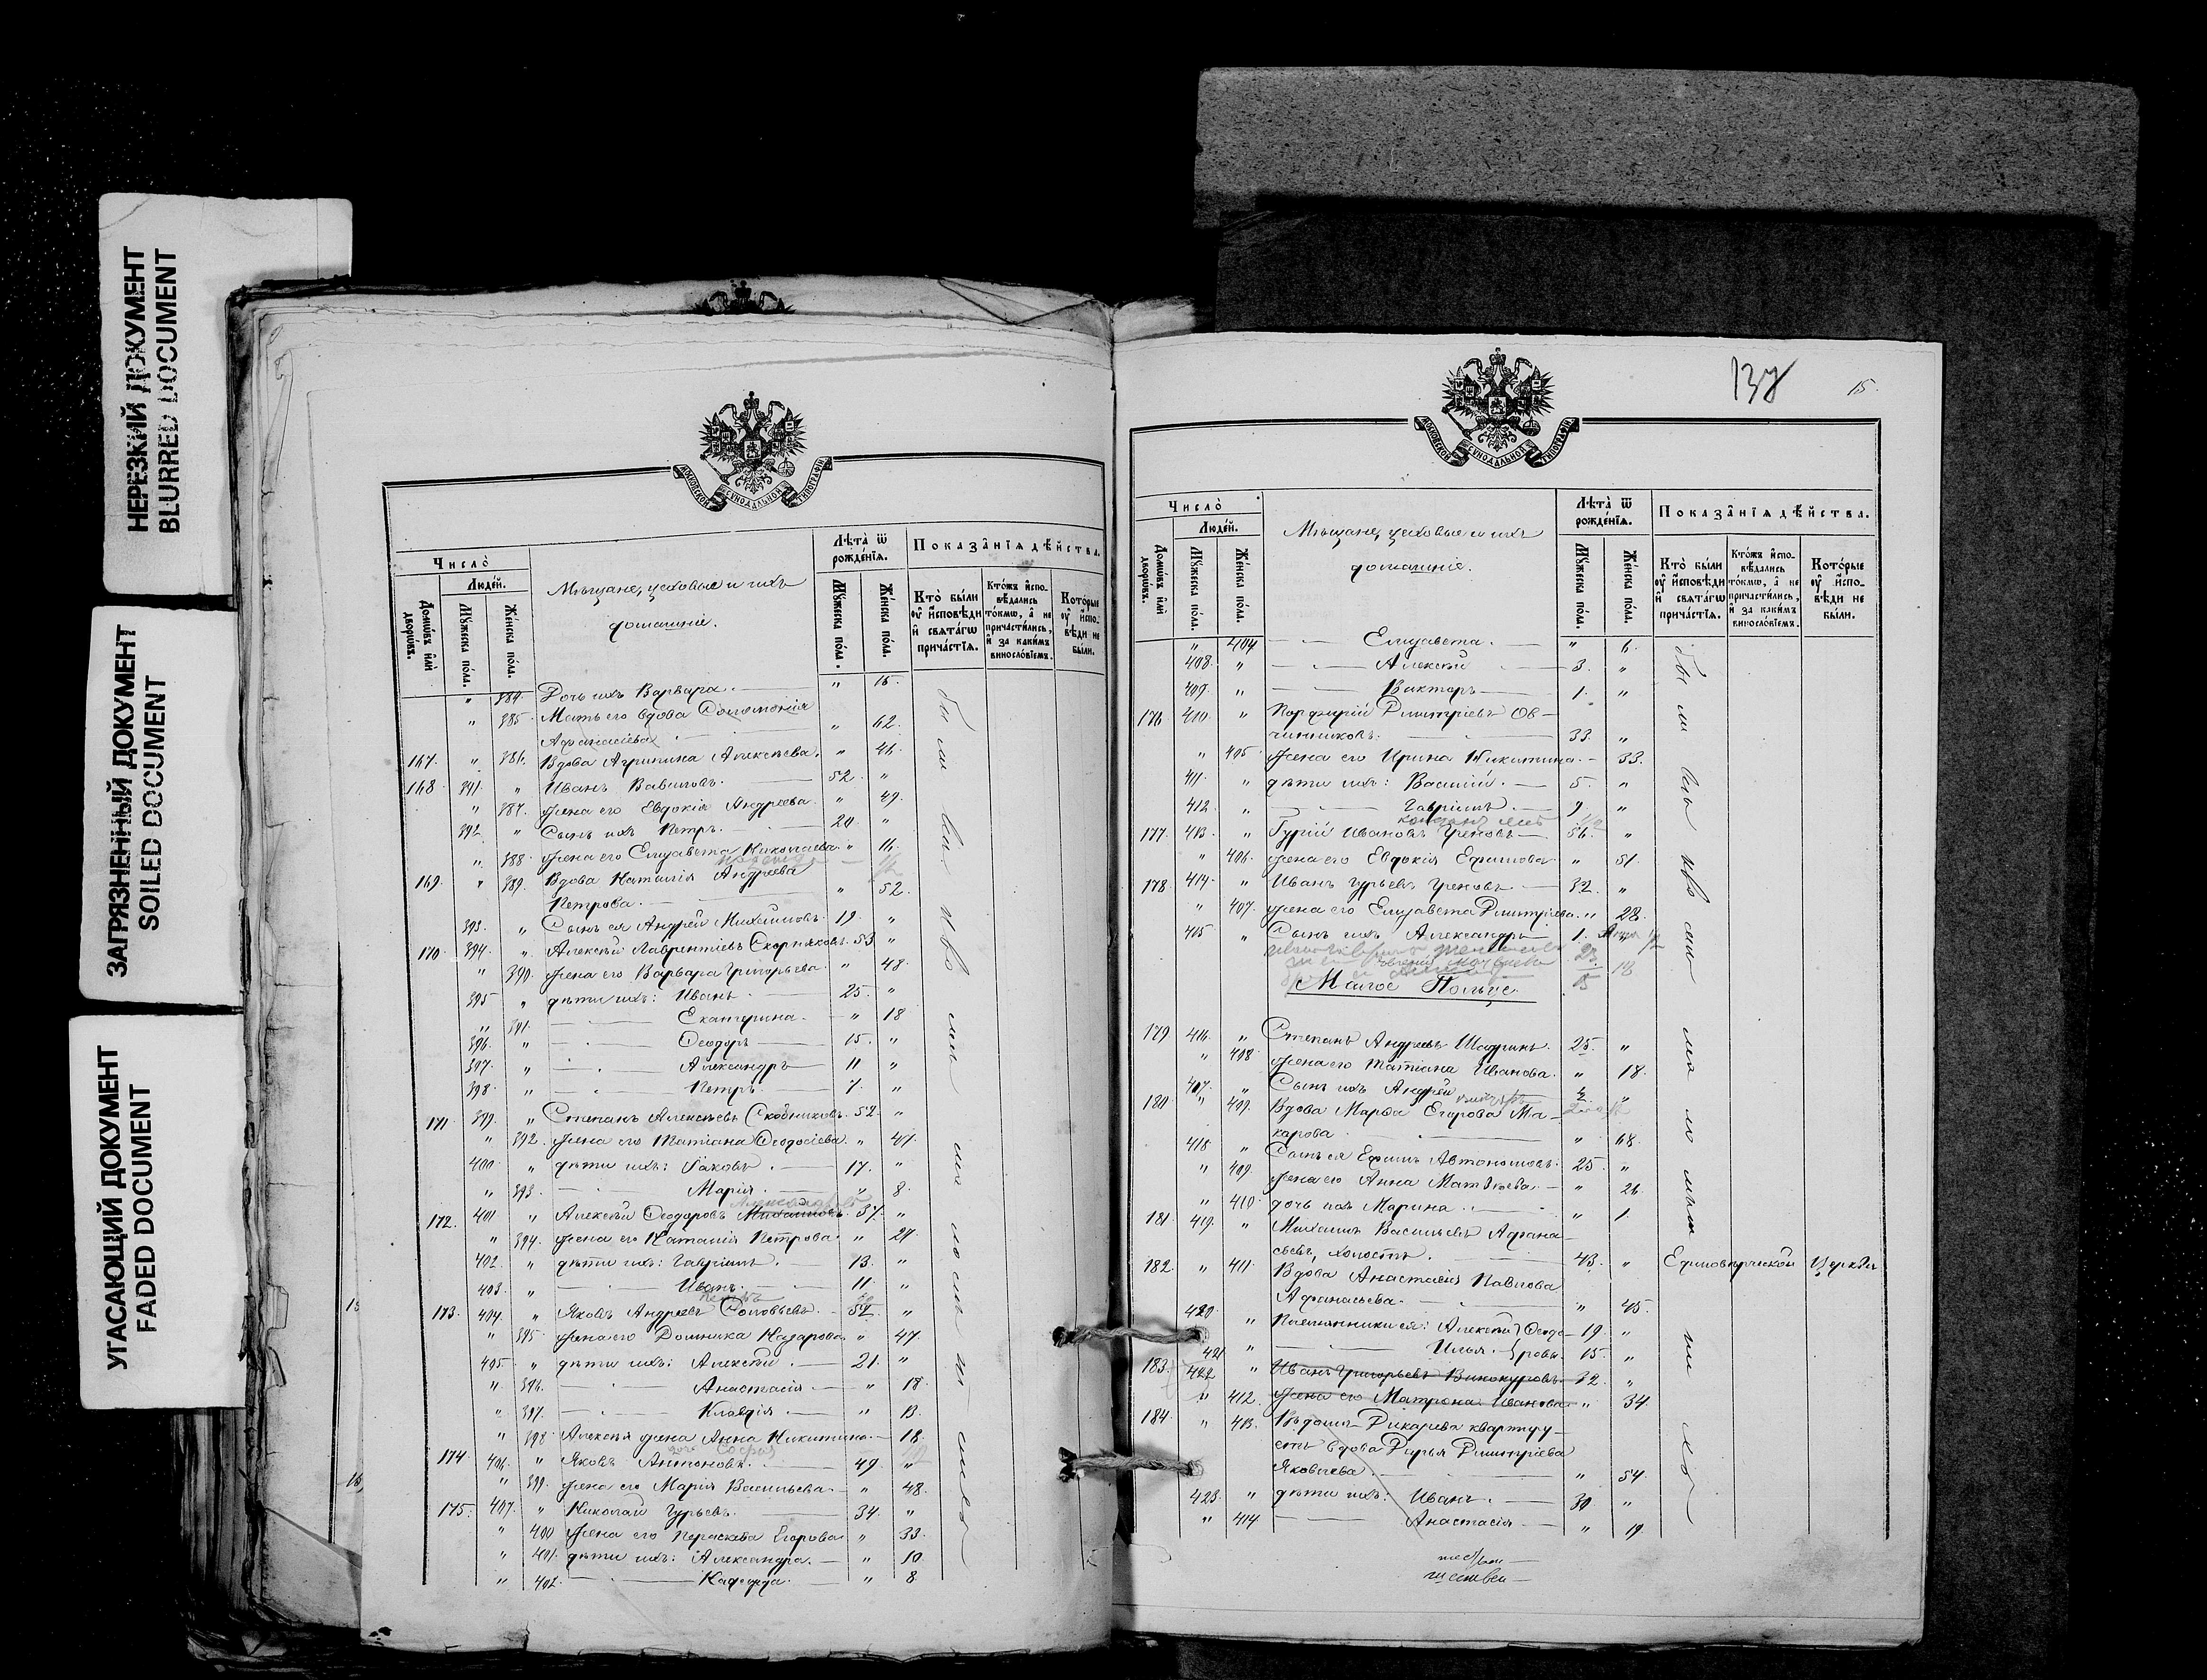 НЕРЕЗКИЙ ДОКУМЕНТ
BLURRED DOCUMENT
ЗАГРЯЗНЕННЫЙ ДОКУМЕНТ
SOILED DOCUMENT
УГАСАЮЩИЙ ДОКУМЕНТ
FADED DOCUMENT
МОСКОВСКОЙ СѴНОДАЛЬНОЙ ТИПОГРАФІИ
Число̀
Людѐй.
Домѡ́въ и҆лѝ дворѡ́въ.
Мꙋ́жеска по́ла.
Же́нска по́ла.
Мѣщане, цеховые и ихъ
домашніе.
Лѣ́та ѿ рожде́нїѧ.
Мꙋ́жеска по́ла.
Же́нска по́ла.
Показа̂нїѧ дѣ́йства.
Кто̀ бы́ли ᲂу҆ и҆́сповѣди и҆ свѧта́гѡ причасті́ѧ.
Кто́жъ и҆сповѣ́дались то́кмѡ, а҆ не причасти́лись, и҆ за каки́мъ винословїемъ.
Кото́рые ᲂу҆ и҆́сповѣди не бы́ли.
" 384. Дочь ихъ Варвара. " 15.
" 385. Мать его вдова Соломонія
Афанасіева " 62.
167. " 386. Вдова Агрипина Алексѣева. " 46.
168. 391. " Иванъ Вавиловъ. 52. "
" 387. Жена его Евдокія Андреева. " 49.
392. " Сынъ ихъ Петръ. 20. "
" 388. Жена его Елизавета Николаева. " 16.
169. " 389. Вдова Наталія Андреева
Петрова. " 52.
393. " Сынъ ея Андрей Михайловъ. 19. "
170. 394. " Алексѣй Лаврентіевъ Скорняковъ. 53. "
" 390. Жена его Варвара Григорьева. " 48.
395 " дѣти ихъ: Иванъ. 25. "
" 391. Екатерина. " 18
396. " Ѳеодоръ 15. "
397. " Александръ 11 "
398. " Петръ. 7. "
171. 399. " Степанъ Алексѣевъ Скобниковъ. 52. "
" 392. Жена его Татіана Ѳеодосіева. " 47.
400. " дѣти ихъ: Іаковъ. 17. "
" 393. Марія. " 8.
172. 401 " Алексѣй Ѳеодоровъ Михайловъ. 37. "
" 394. Жена его Наталія Петрова. " 27.
402. " дѣти ихъ: Гавріилъ. 13. "
403. " Иванъ. 11. "
173. 404. " Яковъ Андреевъ Соловьевъ. 52. "
" 395. Жена его Домника Назарова. " 47.
405. " дѣти ихъ: Алексѣй. 21. "
" 396. Анастасія. " 18.
" 397. Клавдія. " 13.
" 398. Алексѣя жена Анна Никитина. 18.
174. 406. " Яковъ Антоновъ. 49. "
" 399. Жена его Марія Васильева. " 48.
175. 407. " Николай Гурьевъ. 34. "
" 400 Жена его Параскева Егорова. " 33.
" 401. дѣти ихъ: Александра. " 10.
" 402. " 8.
137
15.
МОСКОВСКОЙ СѴНОДАЛЬНОЙ ТИПОГРАФІИ
Число̀
Людѐй.
Домѡ́въ и҆лѝ дворѡ́въ.
Мꙋ́жеска по́ла.
Же́нска по́ла.
Мѣщане, цеховые и ихъ
домашніе.
Лѣ́та ѿ рожде́нїѧ.
Мꙋ́жеска по́ла.
Же́нска по́ла.
Показа̂нїѧ дѣ́йства.
Кто̀ бы́ли ᲂу҆ и҆́сповѣди и҆ свѧта́гѡ причасті́ѧ.
Кто́жъ и҆сповѣ́дались то́кмѡ, а҆ не причасти́лись, и҆ за каки́мъ винословїемъ.
Кото́рые ᲂу҆ и҆́сповѣди не бы́ли.
" 404 Елизавета. " 6.
408. " Алексѣй 3. "
409. " Викторъ 1. "
176. 410. " Порфирій Димитріевъ Ов-
чинниковъ. 33. "
" 405. Жена его Ирина Никитина. 33.
411. " дѣти ихъ: Василій. 5. "
412. " Гавріилъ. 9. "
177. 413. " Гурій Ивановъ 56. "
" 406. Жена его Евдокія Ефимова. " 51.
178. 414. " Иванъ Гурьевъ 32. "
" 407. Жена его Елизавета Димитріева. " 28.
415 " Сынъ ихъ Александръ 1. "
Малое Польце.
179. 416. " Степанъ Андреевъ Шадринъ. 25. "
" 408. Жена его Татіана Иванова. " 18.
407. " Сынъ ихъ Андрей "
180. " 409. Вдова Марѳа Егорова Ма-
карова " 68.
418. " Сынъ ея Ефимъ Автономовъ. 25. "
" 409. Жена его Анна Матвѣева. " 26.
" 410. дочь ихъ Марина. " 1.
181. 419. " Михаилъ Васильевъ Афана-
сьевъ, холостъ. 43. " Единовѣрческой Церкви
182. " 411. Вдова Анастасія Павлова
Афанасьева. " 45.
420. " Племянники ея: Алексѣй Ѳеодо- 19. "
421 " Илья. ровы. 15. "
183. 422 " Иванъ Григорьевъ Винокуровъ. 32. "
" 412. Жена его Матрона Иванова. " 34.
184. " 413. Въ домѣ Дикарева квартиру-
етъ вдова Дарья Димитріева
Яковлева. " 54.
423. " дѣти ихъ: Иванъ. 30. "
" 414 Анастасія " 19.